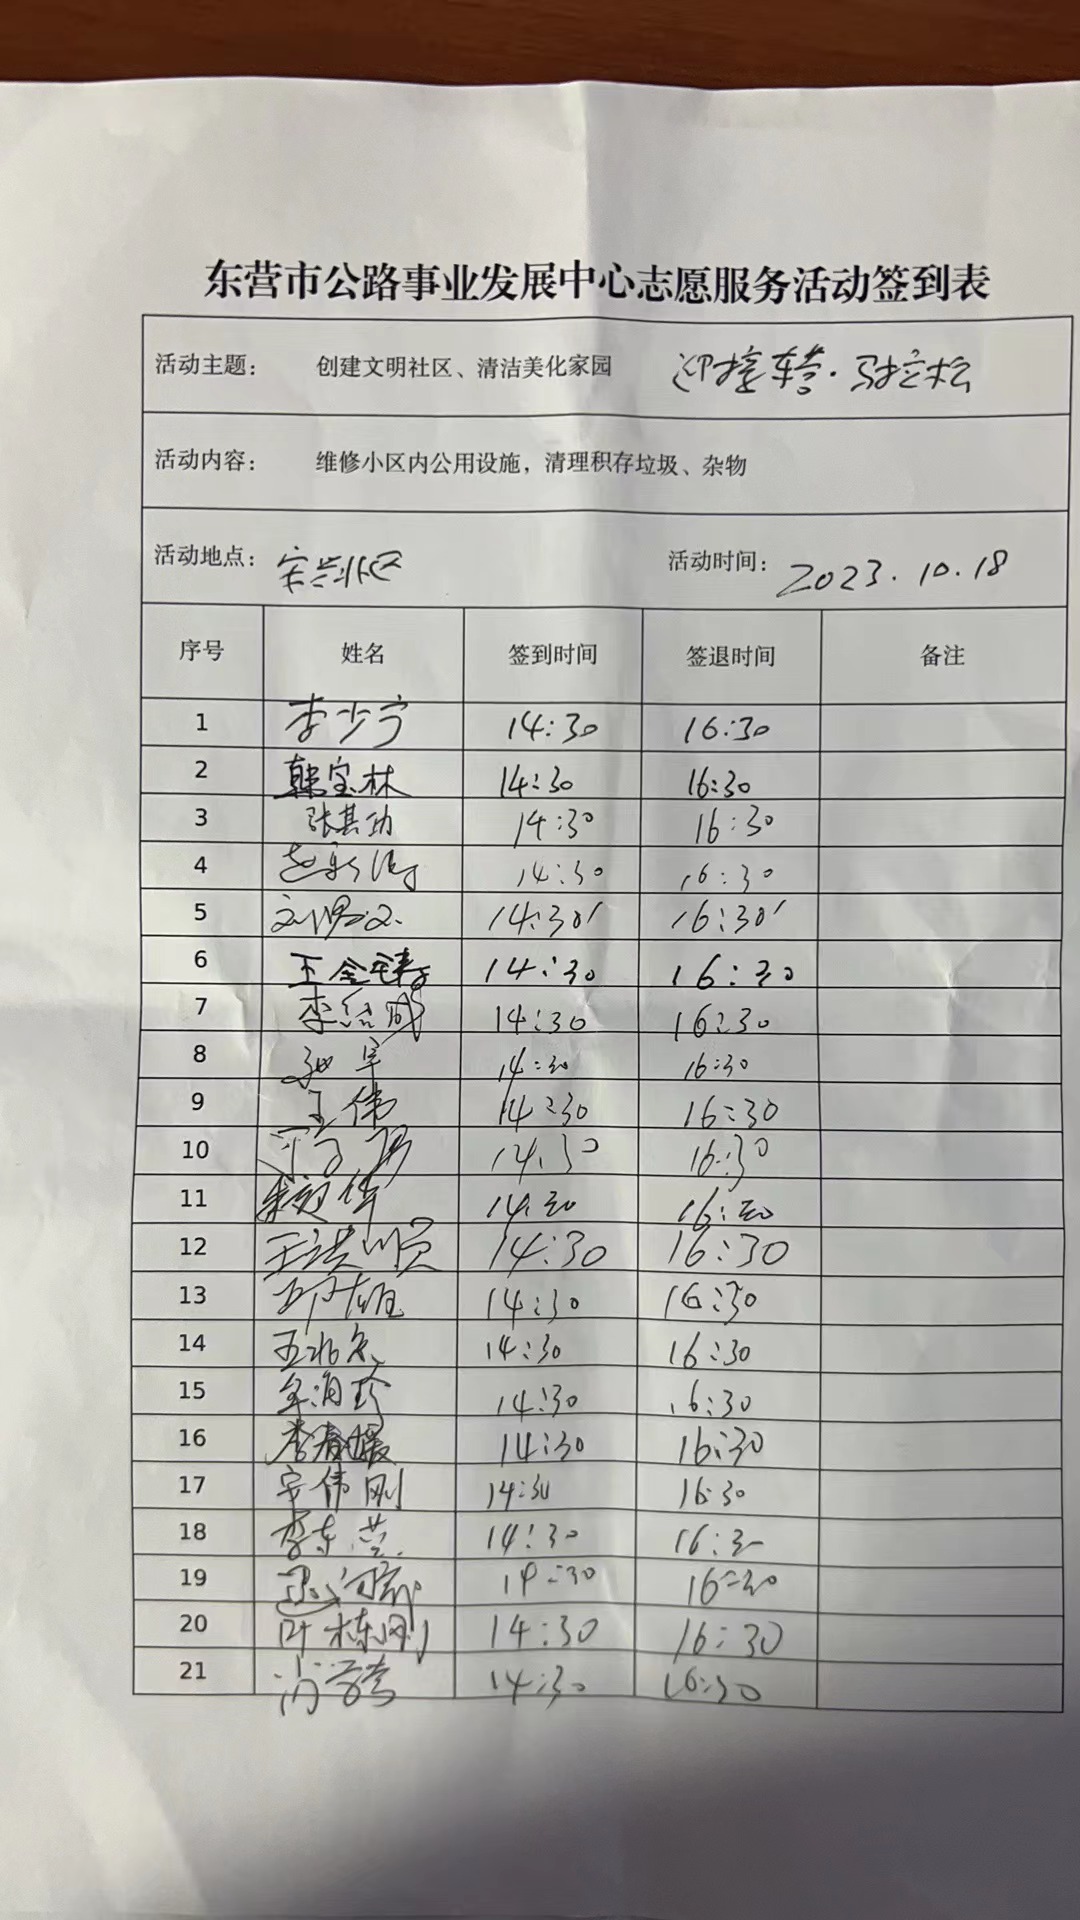 东营市公路事业发展中心志愿服务活动签到表
活动主题： 创建文明社区、清洁美化家园 迎接东营·马拉松
活动内容： 维修小区内公用设施，清理积存垃圾、杂物
活动地点： 活动时间： 2023.10.18
序号 姓名 签到时间 签退时间 备注
1 李少宁 14:30 16:30
2 韩宝林 14:30 16:30
3 张其功 14:30 16:30
4 14:30 16:30
5 14:30' 16:30'
6 王金铸 14:30 16:30
7 李绍成 14:30 16:30
8 14:30 16:30
9 王伟 14:30 16:30
10 14:30 16:30
11 14:30 16:30
12 王洪顺 14:30 16:30
13 14:30 16:30
14 14:30 16:30
15 14:30 16:30
16 李春媛 14:30 16:30
17 安伟刚 14:30 16:30
18 李东芸 14:30 16:30
19 14:30 16:30
20 叶栋刚 14:30 16:30
21 14:30 16:30